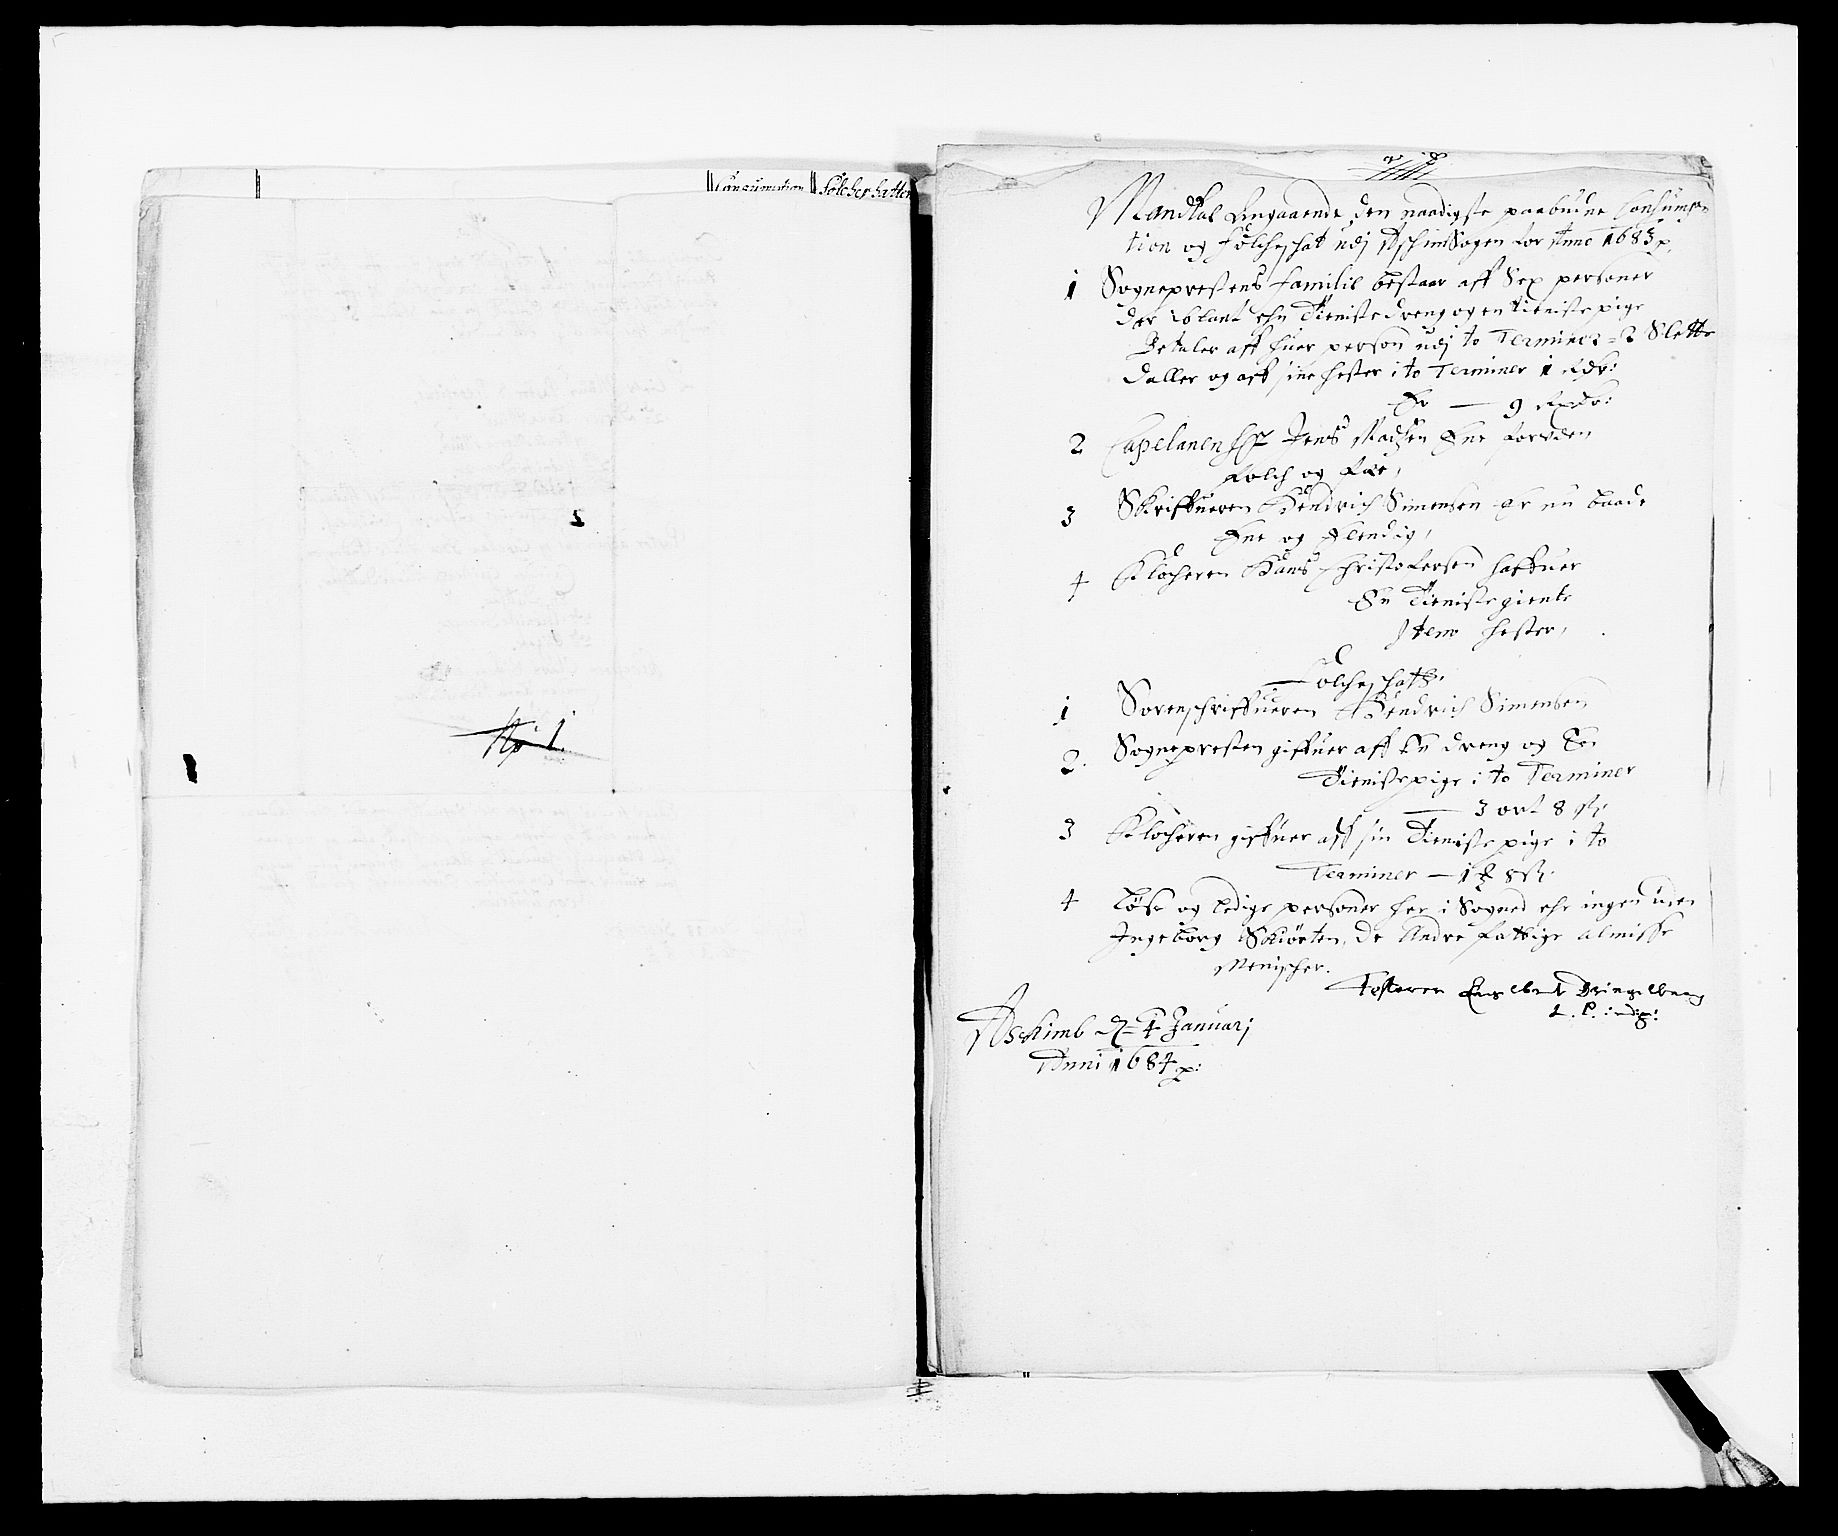 Consumption Folcheschatten
No 1.
Mandtal Angaaende den naadigste paabudne Consump
tion og folcheschat udj Aschim Sogen for Anno 1683 p.
1 Sogneprestens familie bestaar aff Sex personer
der iblant ehn Tienistedreng og en tienistepige
Betaler aff huer person udj to Terminer 2 Slette
daller og aff sine hester i to Terminer 1 Rdr:
Er — 9 Rixdr:
2 Capelanen Hr Jens Madtzen Ene foruden
folch og fæ,
3 Skriffueren Hendrich Simensen er nu baade
Ene og Elendig,
4 Klocheren Hans Christofersen haffuer
En Tienistegiente
Item hester,
Folcheschatt.
1 Sorenschriffueren Hendrich Simensen
2. Sognepresten giffuer aff En dreng og En
Tienistepige i to Terminer
— 3 ort 8 sk.
3 Klocheren giffuer aff sin Tienistepige i to
Terminer — 1 8 sk.
4 Løse og ledige personer her i Sogned ehr ingen uden
Ingeborg Skiørten, de Andre fattige almisse
Menischer.
Testerer
Askimb d. 4 Januarj
Anni 1684 p: